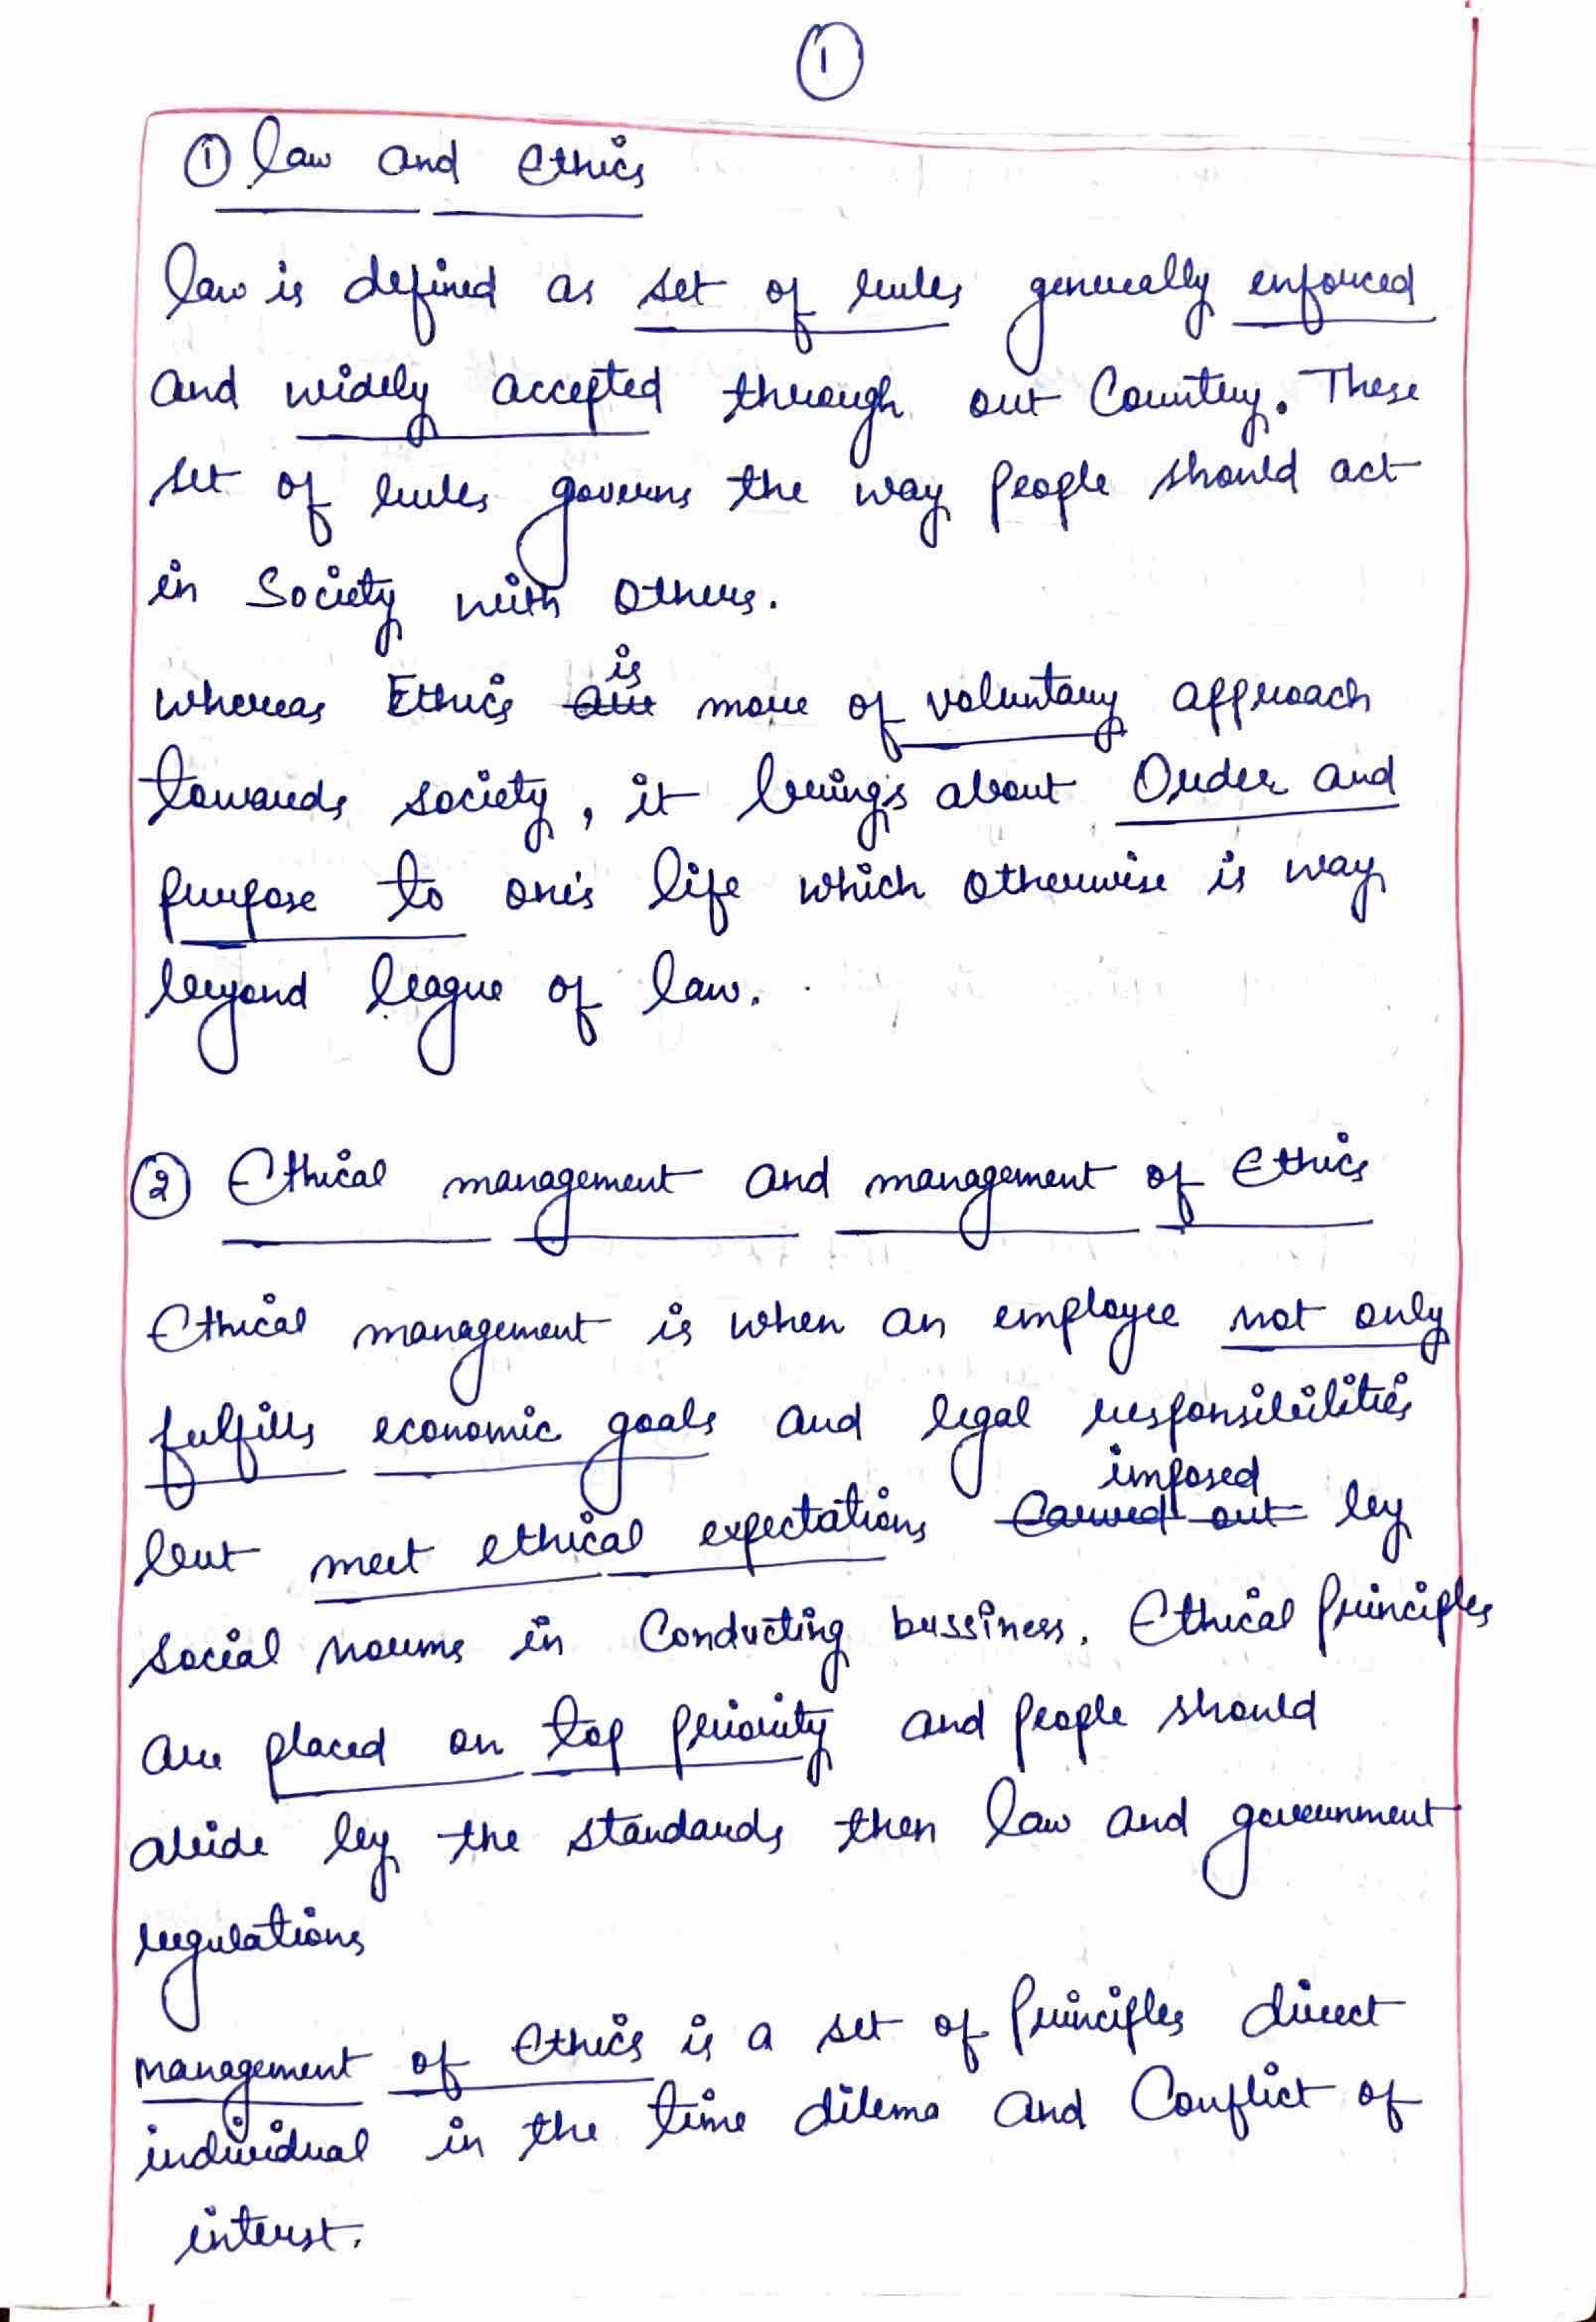 1
① law and Ethics
law is defined as set of rules generally enforced
and widely accepted through out Country. These
set of rules governs the way people should act
in Society with others.
whereas Ethics is more of voluntary approach
towards society, it bring's about Order and
purpose to one's life which otherwise is way
beyond league of law.
② Ethical management and management of Ethics
Ethical management is when an employee not only
fulfills economic goals and legal responsibilities
but meet ethical expectations imposed by
social norms in Conducting bussiness. Ethical principles
are placed on top priority and people should
abide by the standards then law and government
regulations
management of Ethics is a set of principles direct
individual in the time dilema and Conflict of
interst.